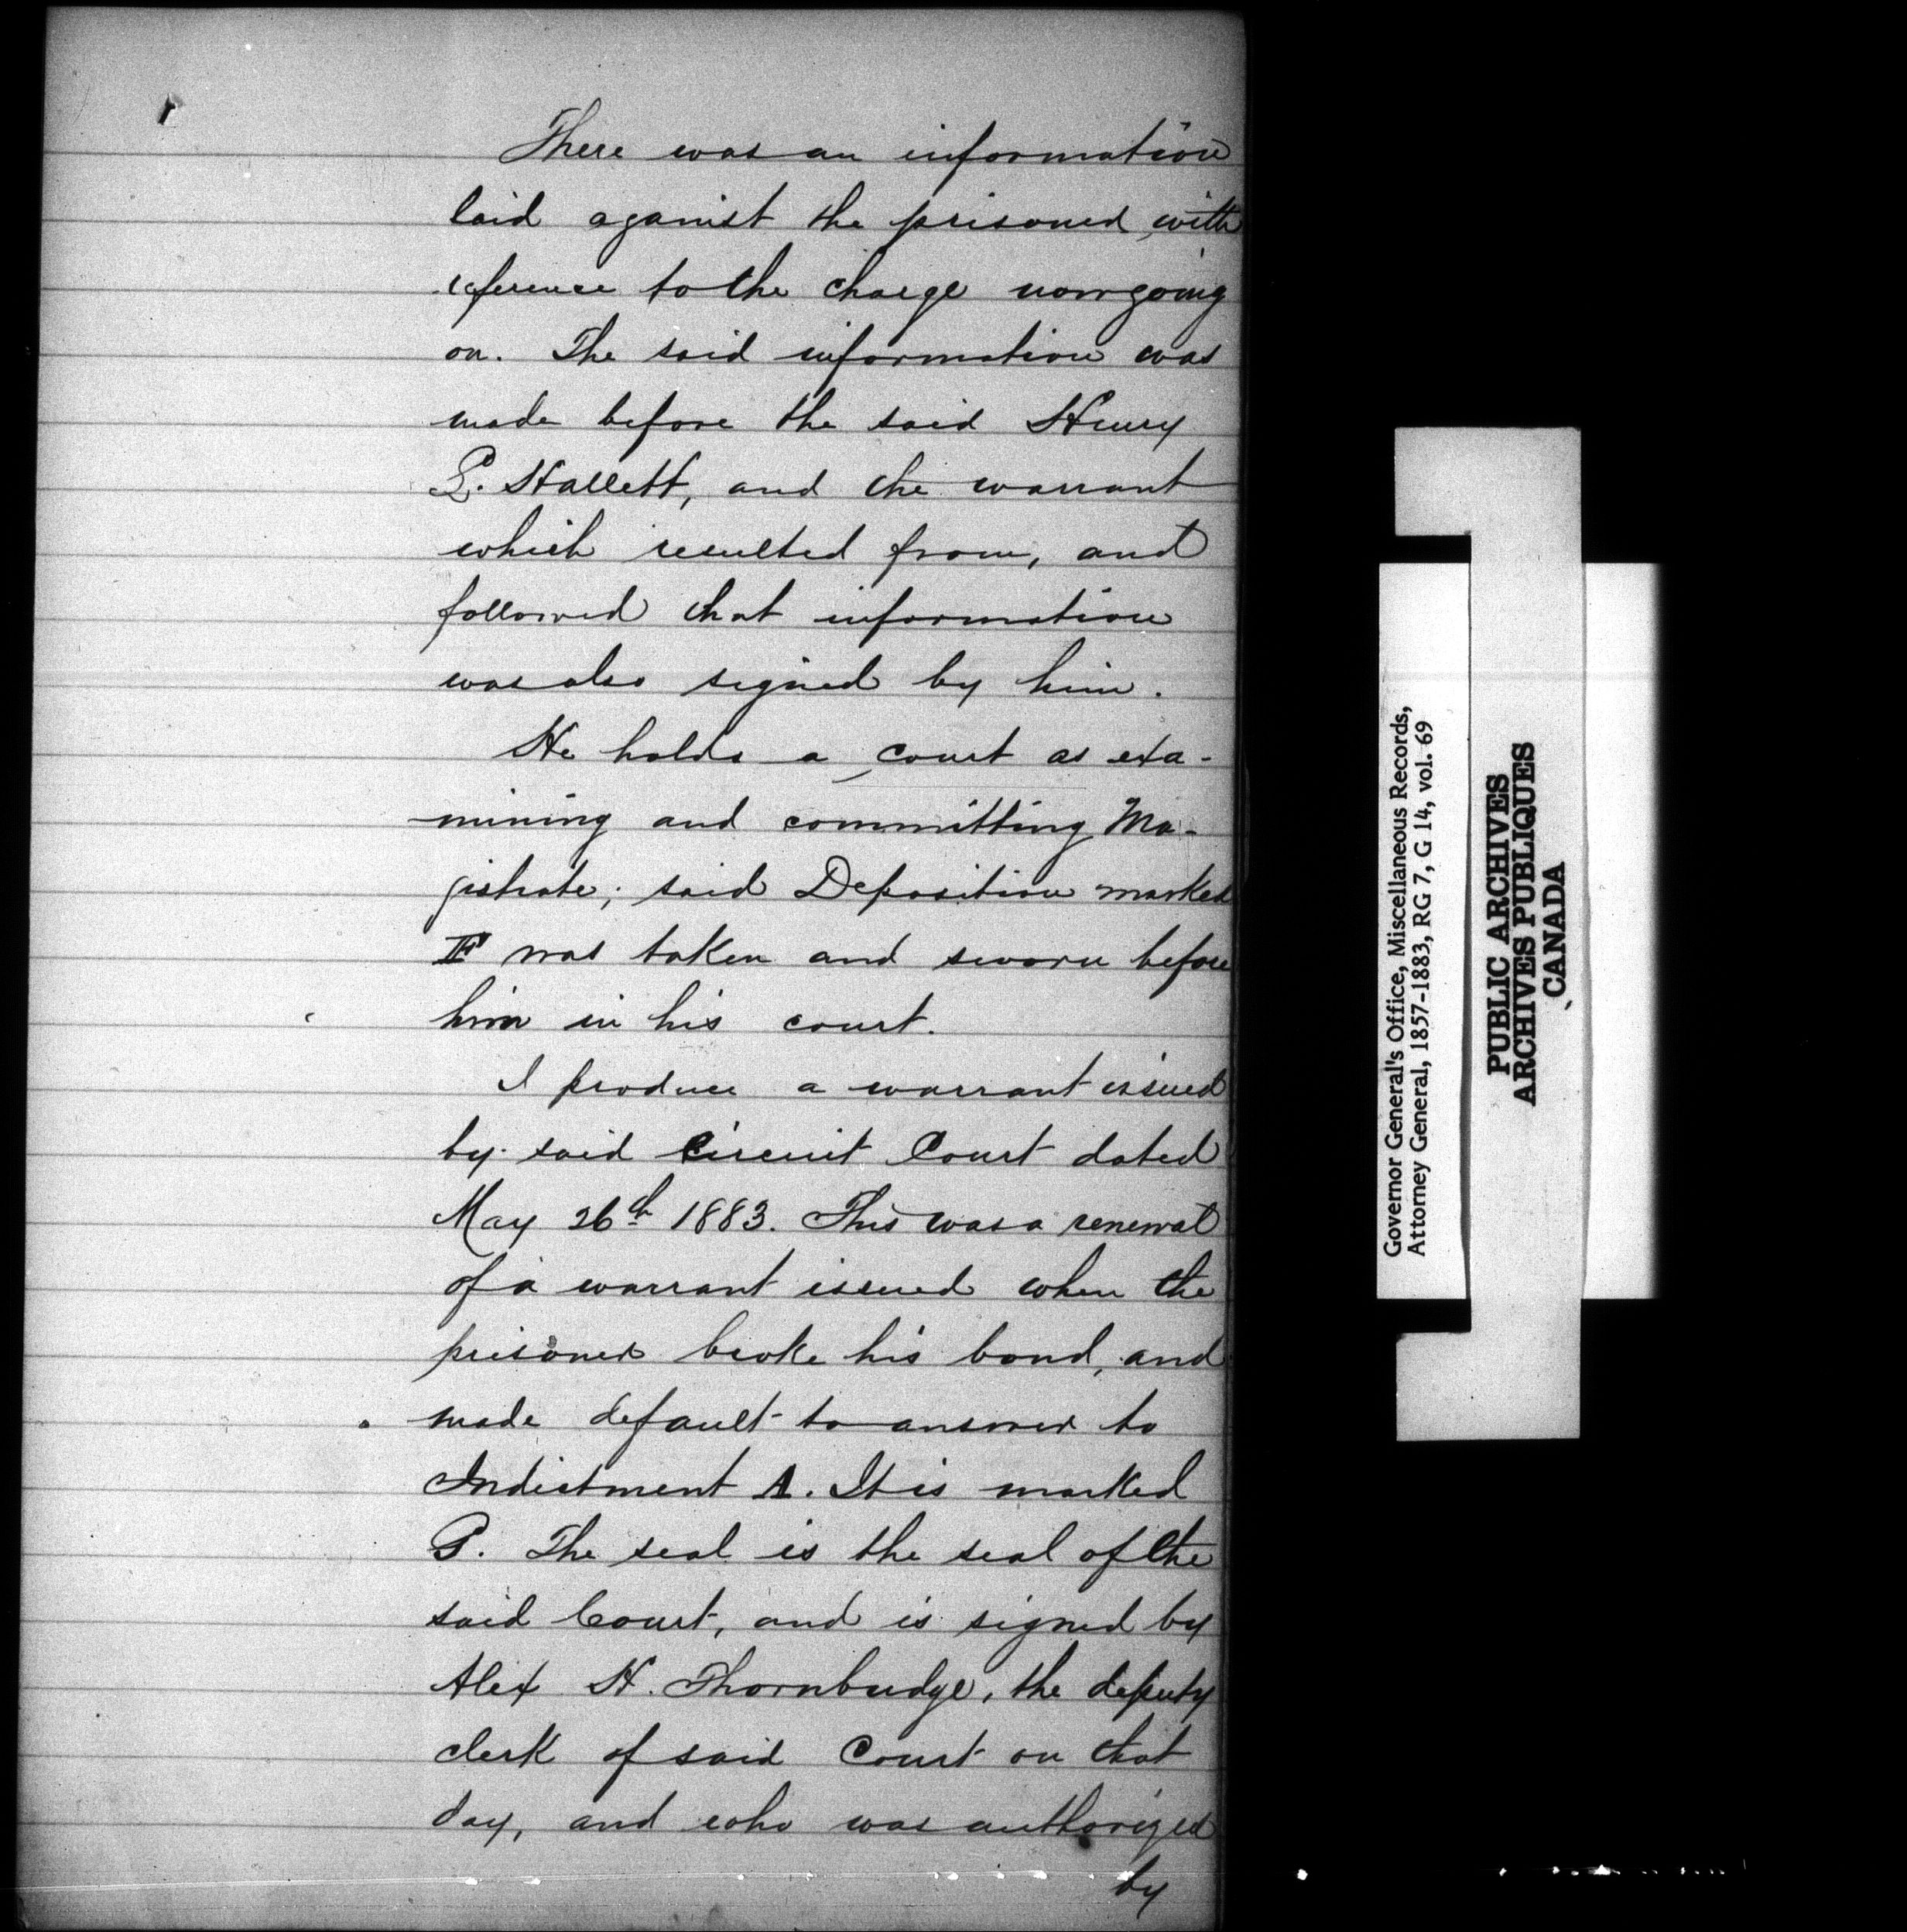 There was an information
laid against the prisoner, with
reference to the charge now going
on. The said information was
made before the said Henry
L. Hallett, and the warrant
which resulted from, and
followed that information
was also signed by him.
He holds a court as exa-
mining and committing Ma-
gistrate; said Deposition marked
F was taken and sworn before
him in his court.
I produce a warrant issued
by said Circuit Court dated
May 26th 1883. This was a renewal
of a warrant issued when the
prisoner broke his bond, and
made default to answer to
Indictment A. It is marked
G. The seal is the seal of the
said Court, and is signed by
Alex H. Thornbudge, the deputy
clerk of said Court on that
day, and who was authorized
by
Governor General's Office, Miscellaneous Records,
Attorney General, 1857-1883, RG 7, G 14, vol. 69
PUBLIC ARCHIVES
ARCHIVES PUBLIQUES
CANADA